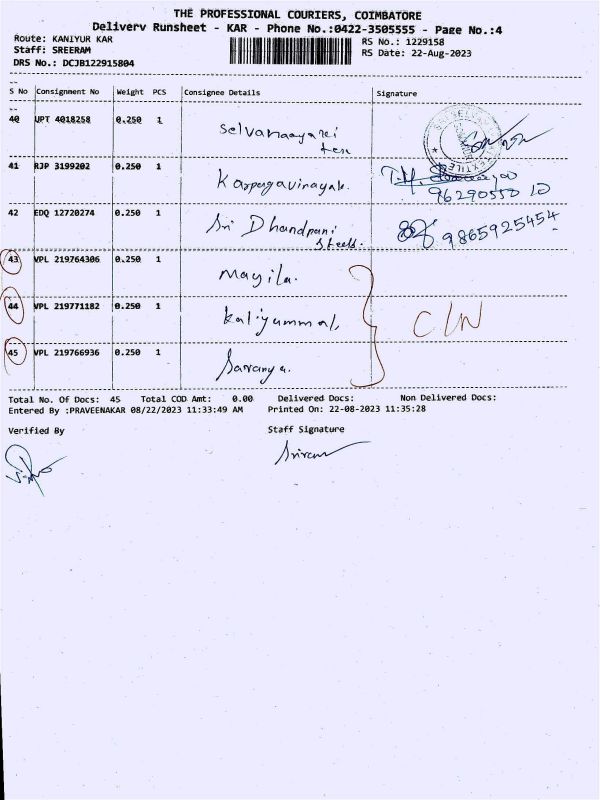 THE PROFESSIONAL COURIERS, COIMBATORE
Delivery Runsheet - KAR - Phone No.:0422-3505555 - Page No.:4
Route: KANIYUR KAR RS No.: 1229158
Staff: SREERAM RS Date: 22-Aug-2023
DRS No.: DCJB122915804
S No Consignment No Weight PCS Consignee Details Signature
40 UPT 4018258 0.250 1 Selvanaayaki tex
41 RJP 3199202 0.250 1 Karpagavinayak. 9629055010
42 EDQ 12720274 0.250 1 Sri Dhandpani Steels. 9865925454
43 VPL 219764306 0.250 1 mayila.
44 VPL 219771182 0.250 1 kaliyummal, C/N
45 VPL 219766936 0.250 1 Saranya.
Total No. Of Docs: 45 Total COD Amt: 0.00 Delivered Docs: Non Delivered Docs:
Entered By :PRAVEENAKAR 08/22/2023 11:33:49 AM Printed On: 22-08-2023 11:35:28
Verified By Staff Signature
Sriram